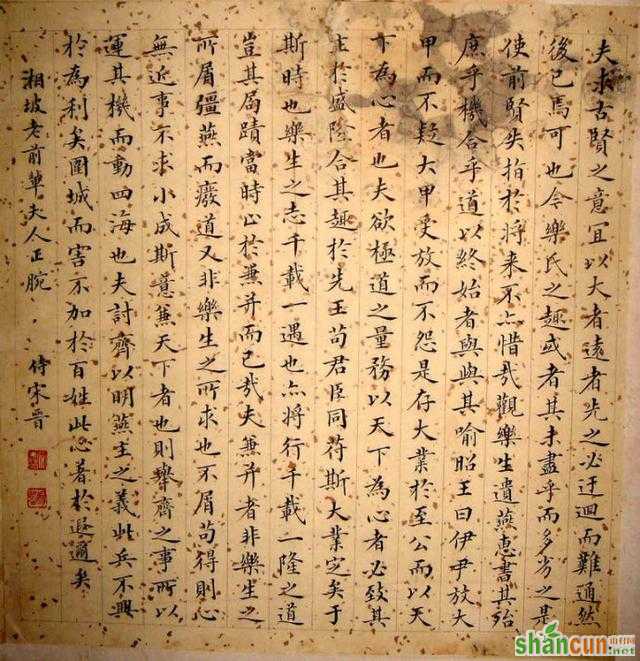 夫求古賢之意宜以大者遠者先之必迂迴而難通然
後已焉可也今樂氏之趣或者其未盡乎而多劣之是
使前賢失指於將来不亦惜哉觀樂生遺燕惠書其殆
庶乎機合乎道以終始者與與其喻昭王曰伊尹放大
甲而不疑大甲受放而不怨是存大業於至公而以天
下為心者也夫欲極道之量務以天下為心者必致其
主於盛隆合其趣於先王苟君臣同符斯大業定矣于
斯時也樂生之志千載一遇也亦將行千載一隆之道
豈其局蹟當時止於兼并而已哉夫兼并者非樂生之
所屑彊燕而廢道又非樂生之所求也不屑苟得則心
無近事不求小成斯意兼天下者也則舉齊之事所以
運其機而動四海也夫討齊以明燕主之義此兵不興
於為利矣圍城而害不加於百姓此心著於遐邇矣
湘坡老前輩夫人正腕 侍宋晋
shancun